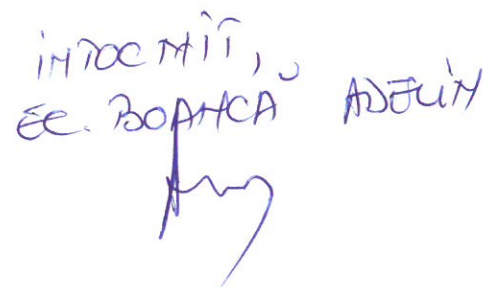 ÎNTOCMIT,
EC. BOANCĂ ADELIN